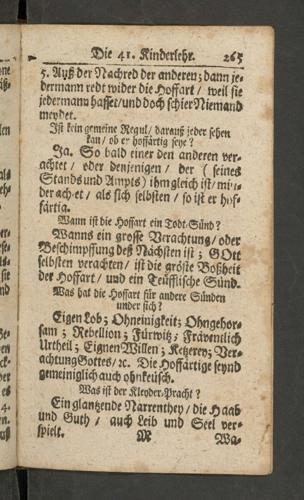 Die 41. Kinderlehr. 265
5. Auß der Nachred der anderen; dann je-
dermann redt wider die Hoffart / weil sie
jedermann hasset / und doch schier Niemand
meydet.
Ist kein gemeine Regul / darauß jeder sehen
kan / ob er hoffärtig seye?
Ja. So bald einer den anderen ver-
achtet / oder denjenigen / der ( seines
Stands und Ampts) ihm gleich ist / min-
der achtet / als sich selbsten / so ist er hof-
färtig.
Wann ist die Hoffart ein Todt-Sünd?
Wanns ein grosse Verachtung / oder
Beschimpffung deß Nächsten ist; GOtt
selbsten verachten / ist die gröste Boßheit
der Hoffart / und ein Teufflische Sünd.
Was hat die Hoffart für andere Sünden
under sich?
Eigen Lob; Ohneinigkeit; Ohngehor-
sam; Rebellion; Fürwitz; Fräventlich
Urtheil; Eignen Willen; Ketzerey; Ver-
achtung Gottes / ꝛc. Die Hoffärtige seynd
gemeiniglich auch ohnkeüsch.
Was ist der Kleyder-Pracht?
Ein glantzende Narrenthey / die Haab
und Guth / auch Leib und Seel ver-
spielt. M Wa-